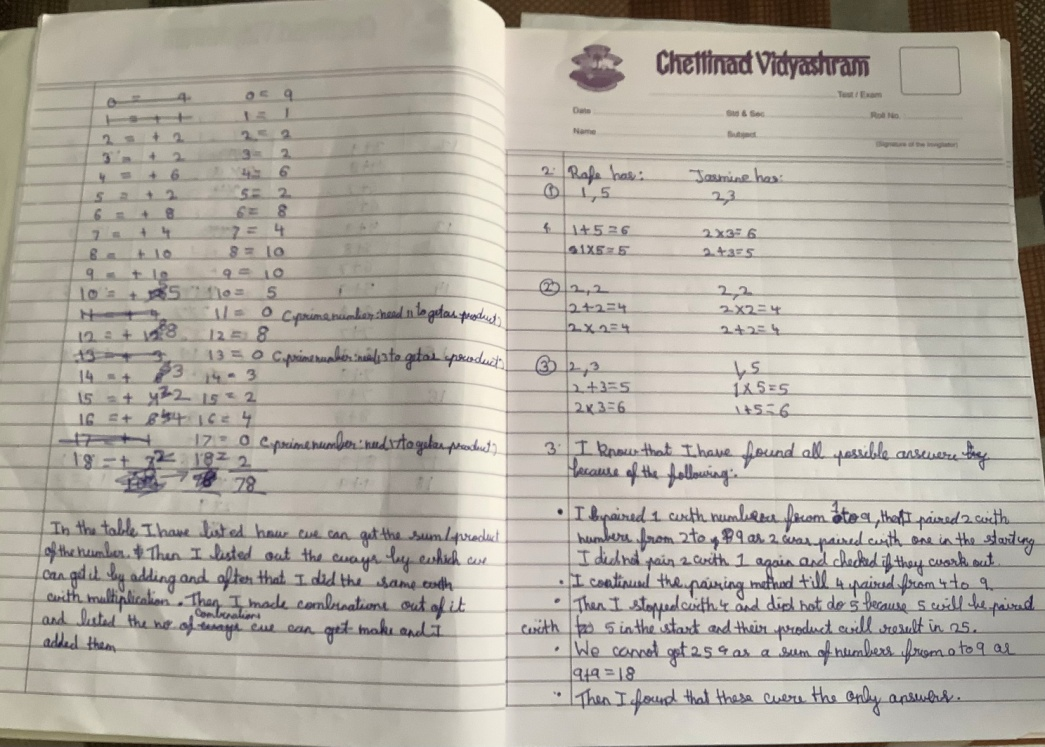 0 = 9 0 = 9
1 = + 1 1 = 1
2 = + 2 2 = 2
3 = + 2 3 = 2
4 = + 6 4 = 6
5 = + 2 5 = 2
6 = + 8 6 = 8
7 = + 4 7 = 4
8 = + 10 8 = 10
9 = + 10 9 = 10
10 = + 5 10 = 5
11 = 0 (prime number: need 11 to get as product)
12 = + 8 12 = 8
13 = + 3 13 = 0 (prime number: need 13 to get as product)
14 = + 3 14 = 3
15 = + 2 15 = 2
16 = + 4 16 = 4
17 = + 1 17 = 0 (prime number: need 17 to get as product)
18 = + 2 18 = 2
78
In the table I have listed how we can get the sum/product
of the number. Then I listed out the ways by which we
can get it by adding and after that I did the same with
with multiplication. Then I made combinations out of it
and listed the no of combinations we can get make and I
added them
Chettinad Vidyashram
Test / Exam
Date Std & Sec Roll No
Name Subject
(Signature of the Invigilator)
2. Rafe has: Jasmine has:
① 1,5 2,3
1+5=6 2×3=6
1×5=5 2+3=5
② 2,2 2,2
2+2=4 2×2=4
2×2=4 2+2=4
③ 2,3 1,5
2+3=5 1×5=5
2×3=6 1+5=6
3. I know that I have found all possible answers
because of the following:
• I paired 1 with numbers from 1 to 9, then I paired 2 with
numbers from 2 to 9 as 2 was paired with one in the starting
I did not pair 2 with 1 again and checked if they work out.
• I continued the pairing method till 4 paired from 4 to 9.
• Then I stopped with 4 and did not do 5 because 5 will be paired
with 5 in the start and their product will result in 25.
• We cannot get 25 as a sum of numbers from 0 to 9 as
9+9=18
• Then I found that these were the only answers.